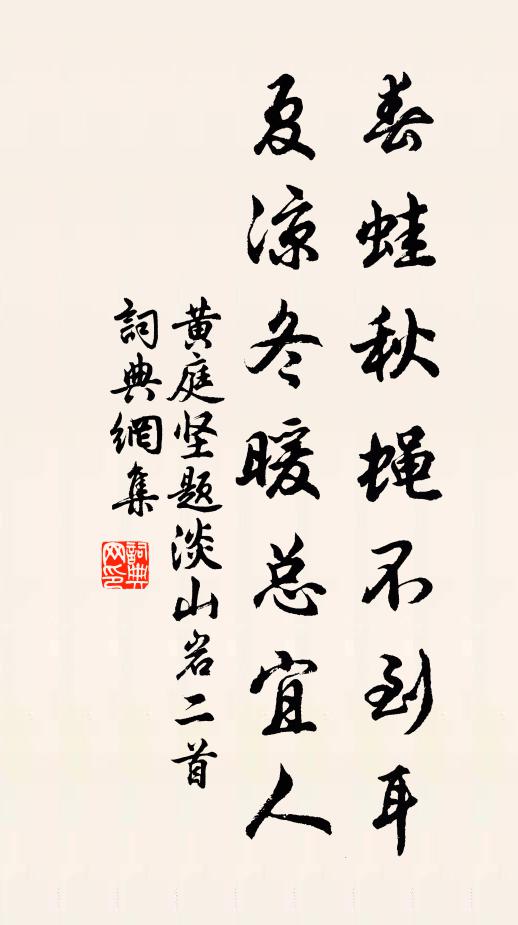 春蛙秋蝇不到耳
夏凉冬暖总宜人
黄庭坚题淡山岩二首
詞典網集
詞典网印